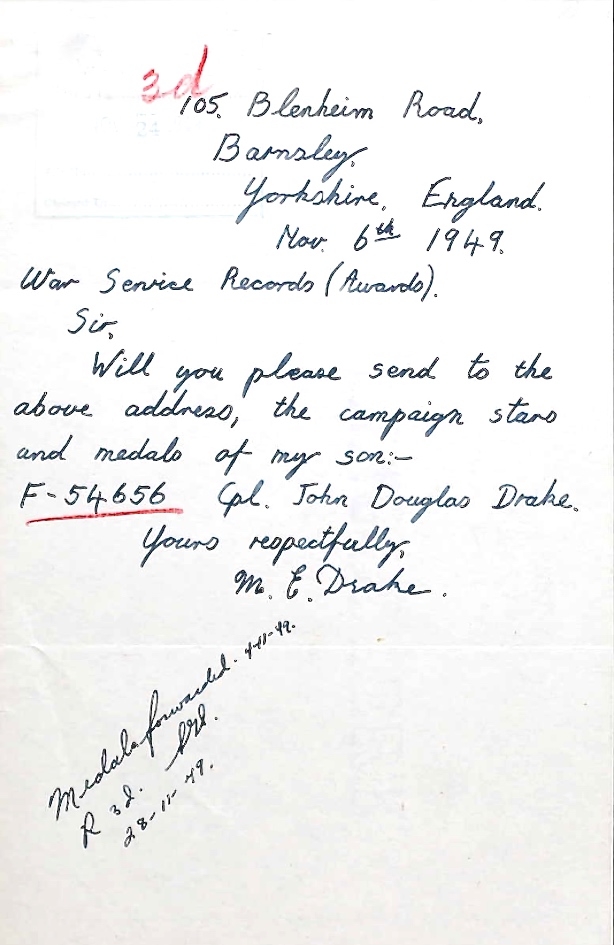 3d
105. Blenheim Road,
Barnsley,
Yorkshire, England.
Nov. 6th 1949.
War Service Records (Awards).
Sir,
Will you please send to the
above address, the campaign stars
and medals of my son:-
F-54656 Cpl. John Douglas Drake.
Yours respectfully,
M. E. Drake.
Medals forwarded.
R 3d.
28-11-49.